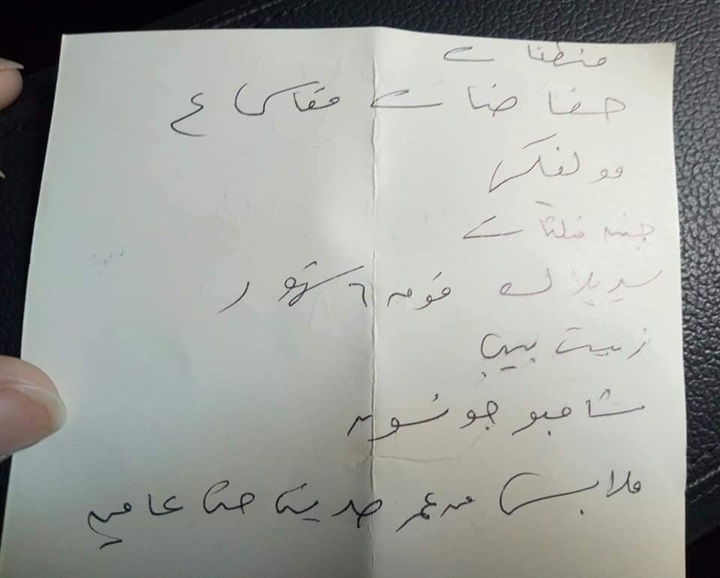 منظفات
حفاضات مقاس ع
فولفكس
جبنه مثلثات
سريلاك فوق ٦ شهور
زيت بيبي
شامبو جونسون
ملابس من عمر حديث حتى عامين